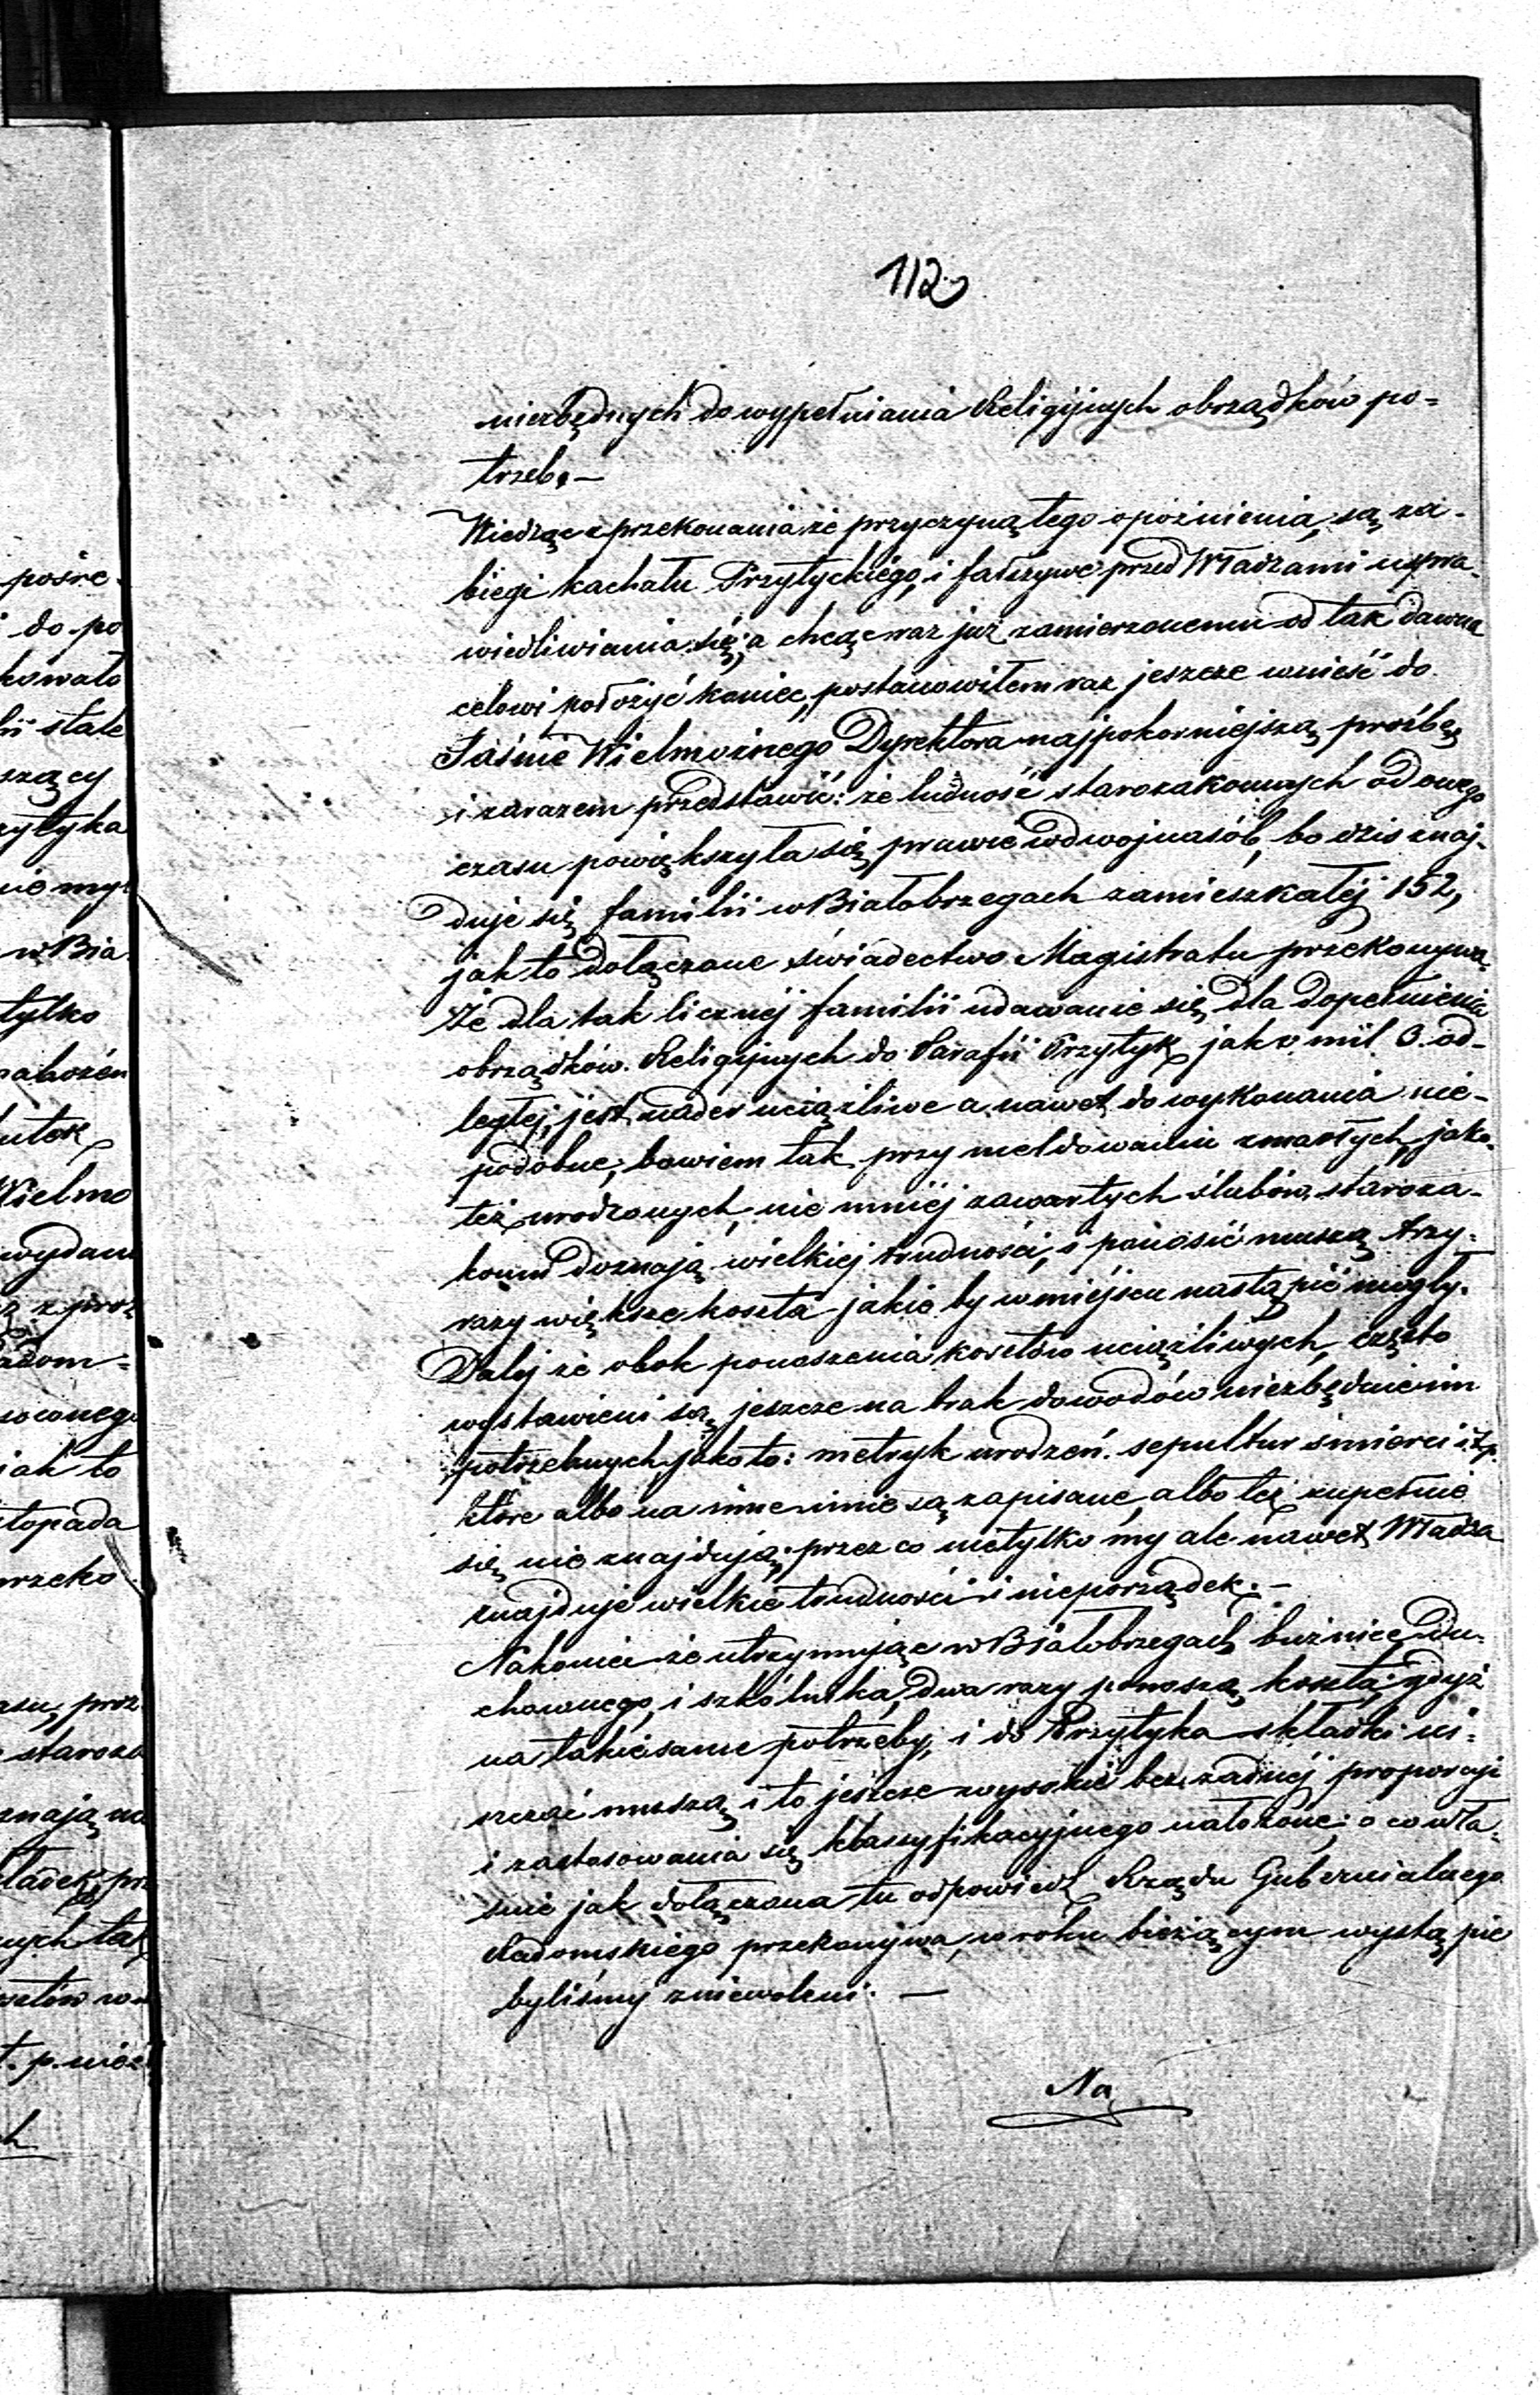 112
niezbędnych do wypełniania Religijnych obrządków po=
trzeb.—
Wiedząc z przekonania że przyczyną tego opóźnienia, są za-
biegi kachału Przytyckiego, i fałszywe przed Władzami uspra-
wiedliwiania się; a chcąc raz już zamierzonemu od tak dawna
celowi położyć koniec, postanowiłem raz jeszcze wnieść do
Jaśnie Wielmożnego Dyrektora najpokorniejszą prośbę,
i zarazem przedstawić: że ludność starozakonnych od owego
czasu powiększyła się prawie w dwojnasób, bo dziś znaj-
duje się familii w Białobrzegach zamieszkałéj 152,
jak to dołączone świadectwo Magistratu przekonywa.
Że dla tak licznéj familii udawanie się dla dopełnienia
obrządków Religijnych do Parafii Przytyk, jako mil 3. od-
ległéj, jest nader uciążliwe a nawet do wykonania nie-
podobne, bowiem tak przy meldowaniu zmarłych, jako-
też urodzonych, nie mniéj zawartych ślubów, staroza-
konni doznają wielkiej trudności, i ponosić muszą trzy-
razy większe koszta jakie by w miéjscu nastąpić mogły.
Daléj że obok ponoszenia kosztów uciążliwych, często
wystawieni są jeszcze na brak dowodów niezbędnie im
potrzebnych jako to: metryk urodzeń. sepultur śmierci i t.p.
które albo na inne imie są zapisane, albo też zupełnie
się nie znajdują; przez co nietylko my ale nawet Władza
znajduje wielkie trudności i nieporządek.—
Nakoniec że utrzymując w Białobrzegach bużnicę Du-
chownego, i szkólnika, dwa razy ponoszą koszta, gdyż
na takie same potrzeby, i do Przytyka składki ui-
szczać muszą, i to jeszcze wysokie bez żadnéj proporcji
i zastosowania się klassyfikacyjnego nałożone; o co wła-
śnie jak dołączona tu odpowiedź Rządu Gubernialnego
Radomskiego przekonywa, w roku bieżącym wystąpić
byliśmy zniewoleni. —
Na
pośre-
do po
kowało
lii stale
szący
zytyka
nie my
w Bia
tylko
nabożeń
utek
Wielmo
wydan
adom=
jak to
topada
rzeko
staroza
znają